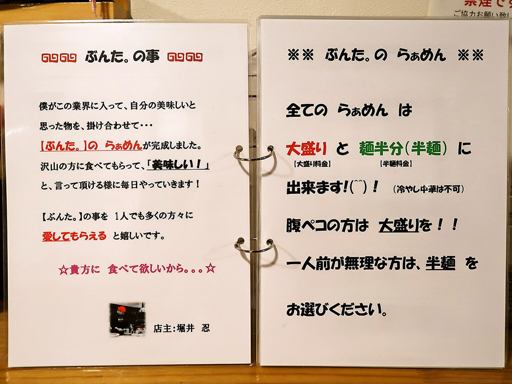 ぶんた。の事
僕がこの業界に入って、自分の美味しいと
思った物を、掛け合わせて・・・
【ぶんた。】の らぁめんが完成しました。
沢山の方に食べてもらって、「美味しい！」
と、言って頂ける様に毎日やっていきます！
【ぶんた。】の事を 1人でも多くの方々に
愛してもらえる と嬉しいです。
☆貴方に 食べて欲しいから。。。☆
店主：堀井 忍
ご協力お願い致し
※※ ぶんた。の らぁめん ※※
全ての らぁめん は
大盛り と 麺半分(半麺) に
【大盛り料金】 【半麺料金】
出来ます!(⌒⌒)！ (冷やし中華は不可)
腹ペコの方は 大盛りを！！
一人前が無理な方は、半麺 を
お選びください。